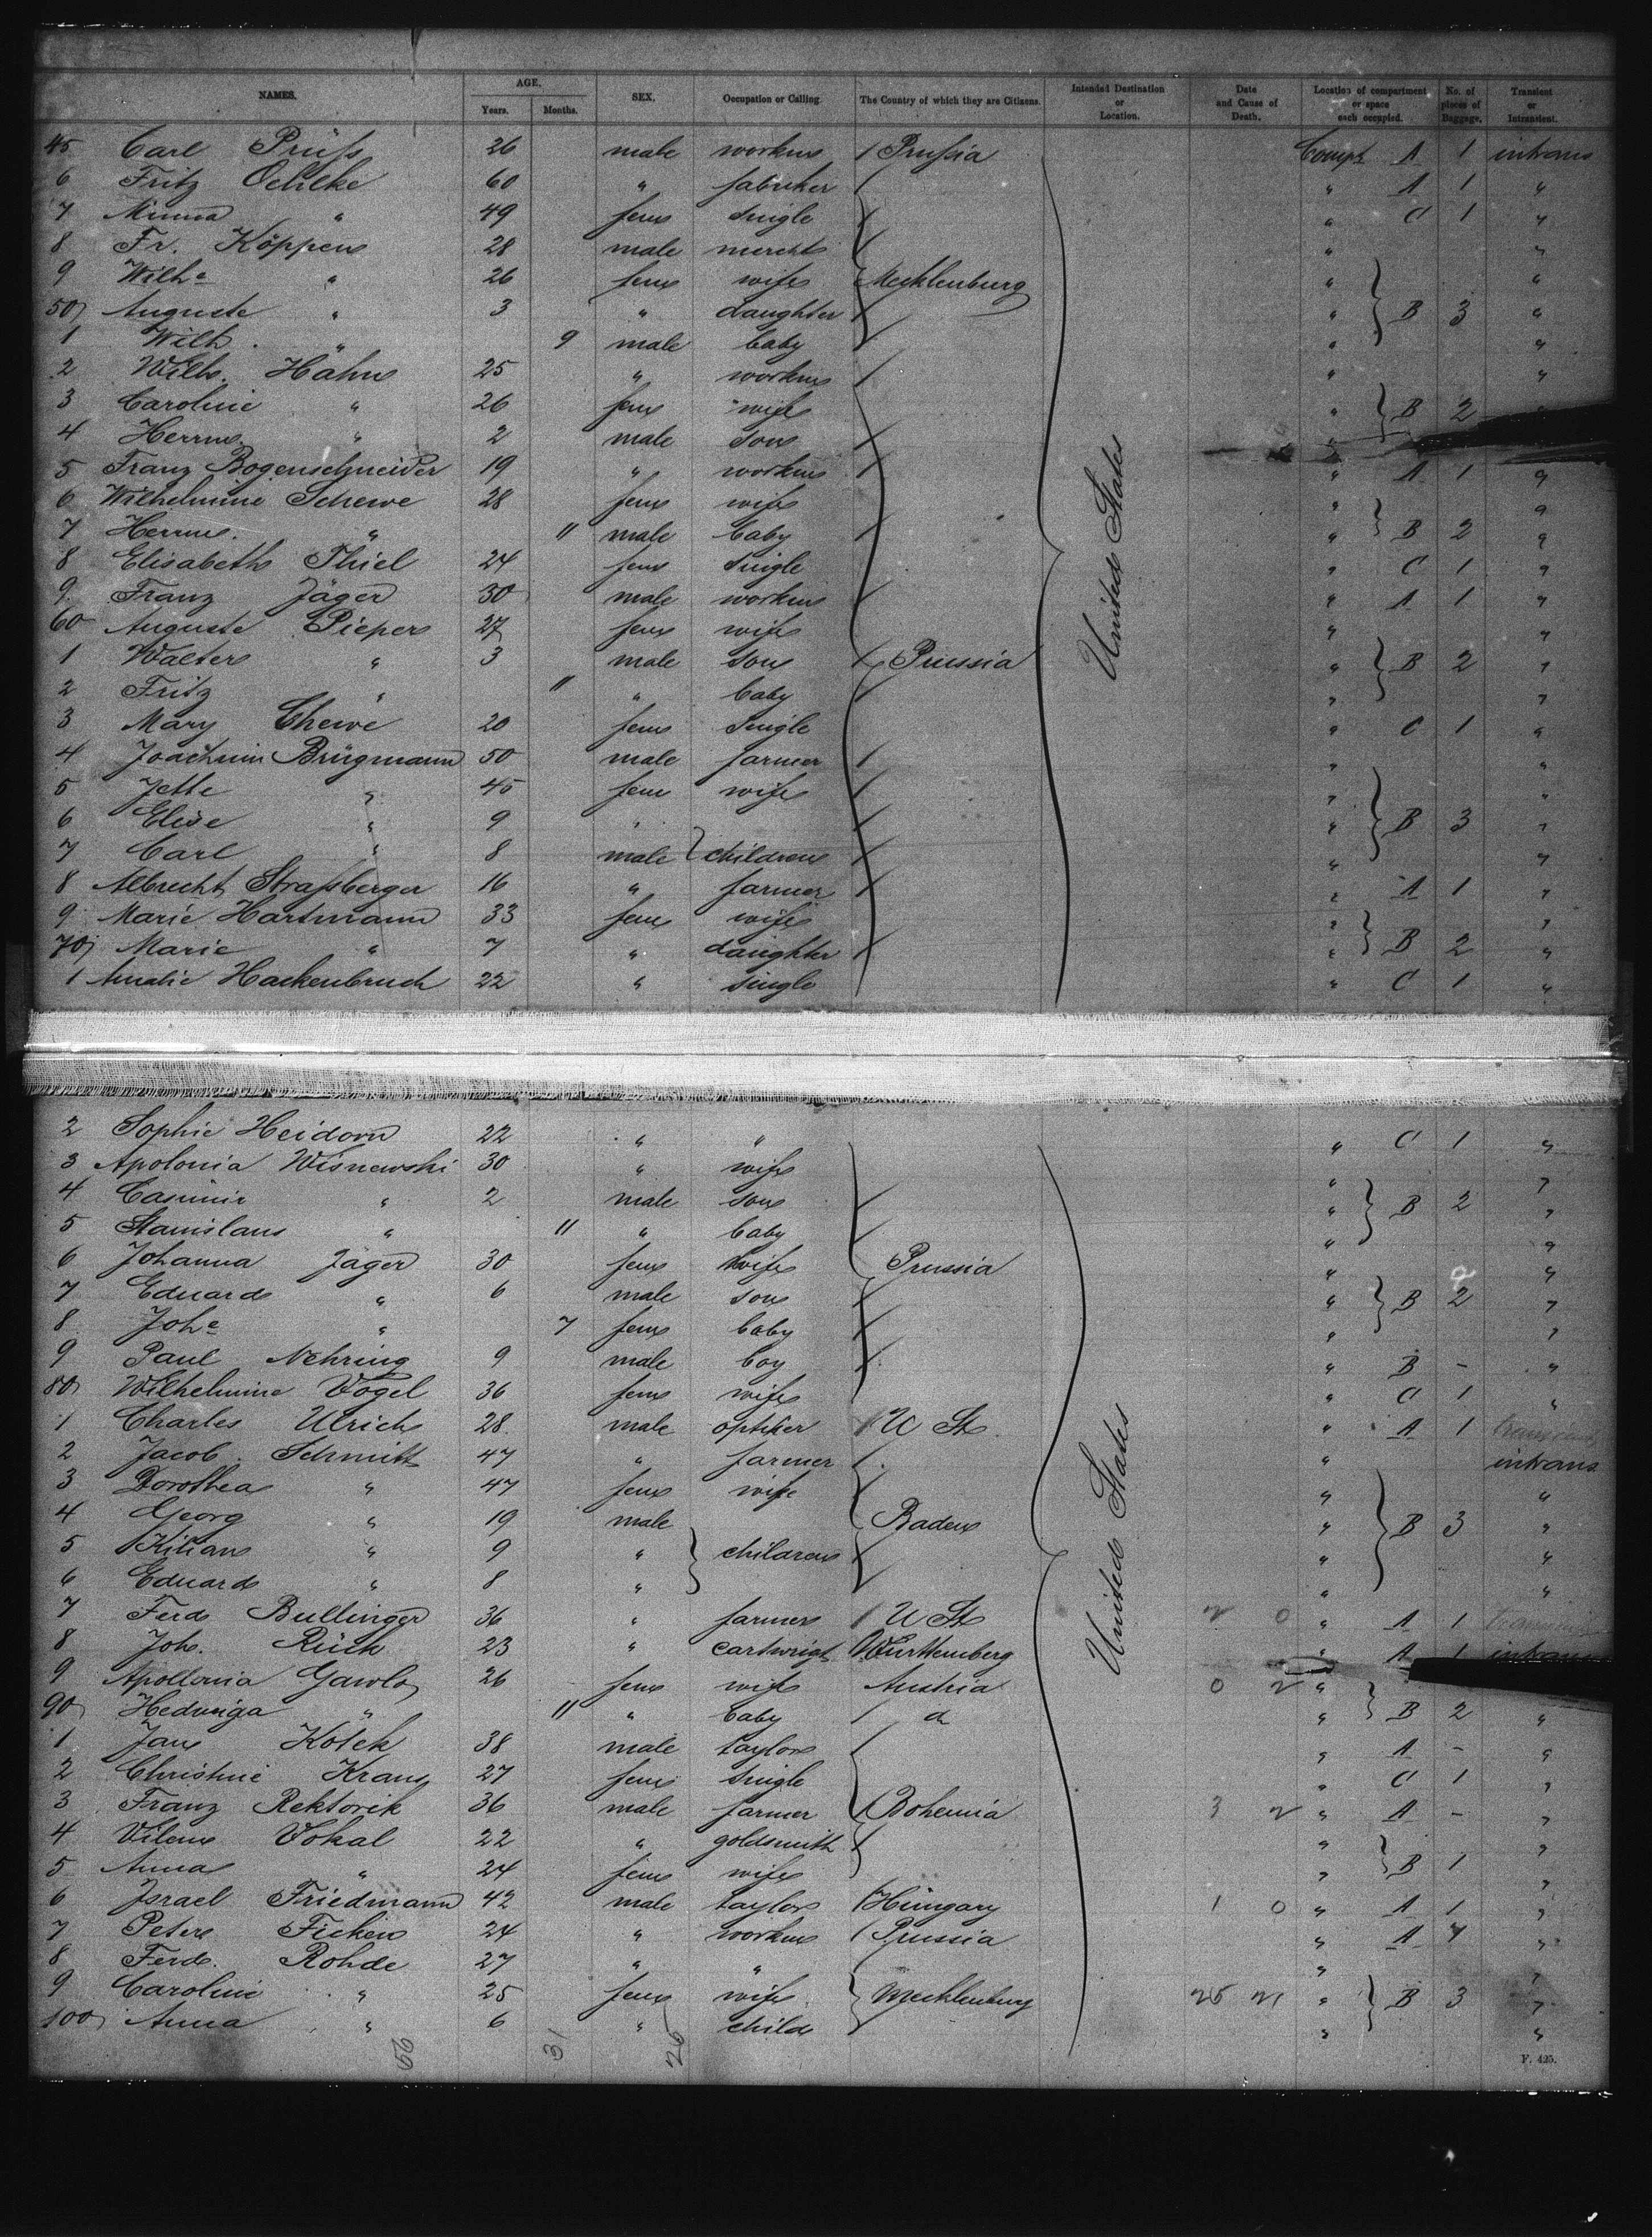 NAMES. AGE. Years. Months. SEX. Occupation or Calling. The Country of which they are Citizens. Intended Destination or Location. Date and Cause of Death. Location of compartment or space each occupied. No. of pieces of Baggage. Transient or Intransient.
45 Carl Prüss 26 male workm / Prussia Comps A 1 intrans
6 Fritz Oehlke 60 " fabriker / " A 1 "
7 Minna " 49 fem single / " C 1 "
8 Fr. Köppen 28 male mercht / " "
9 Wilhe " 26 fem wife Mecklenburg " "
50 Auguste " 3 " daughter / " B 3 "
1 Wilh. " 9 male baby / " "
2 Wilh. Hahn 25 " workm / " "
3 Caroline " 26 fem wife " B 2
4 Herrm. " 2 male son / "
5 Franz Bogenschneider 19 " workm / " A 1 "
6 Wilhelmine Schewe 28 fem wife " "
7 Herrm. " 11 male baby / " B 2 "
8 Elisabeth Thiel 24 fem single " C 1 "
9 Franz Jäger 30 male workm / " A 1 "
60 Auguste Pieper 27 fem wife " "
1 Walter " 3 male son / Prussia United States " B 2 "
2 Fritz " 11 " baby / " "
3 Mary Thewe 20 fem single " C 1 "
4 Joachim Brügmann 50 male farmer / " "
5 Jette " 45 fem wife / " "
6 Elise " 9 " / " B 3 "
7 Carl " 8 male children / " "
8 Albrecht Strassberger 16 " farmer / " A 1 "
9 Marie Hartmann 33 fem wife " "
70 Marie " 7 " daughter / " B 2 "
1 Amalie Hackenbruch 22 " single " C 1 "
2 Sophie Heidorn 22 " " " C 1 "
3 Apolonia Wisnewski 30 " wife " "
4 Casimir " 2 male son / " B 2 "
5 Stanislaus " 11 " baby / " "
6 Johanna Jäger 30 fem wife Prussia " "
7 Eduard " 6 male son / " B 2 "
8 Johe " 7 fem baby / " "
9 Paul Nehring 9 male boy / " B - "
80 Wilhelmine Vogel 36 fem wife " C 1 "
1 Charles Ulrich 28 male optiker / U St. " A 1
2 Jacob Schmitt 47 " farmer / " intrans
3 Dorothea " 47 fem wife / " "
4 Georg " 19 male Baden United States " B 3 "
5 Kilian " 9 " children / " "
6 Eduard " 8 " / " "
7 Ferd Bullinger 36 " farmer / U St 2 0 " A 1
8 Joh. Rück 23 " cartwrigt / Württemberg " A 1 intrans
9 Apollonia Gawlo 26 fem wife Austria 0 2 "
90 Hedwiga " 11 " baby / " B 2 "
1 Jan Kotek 38 male taylor / " A - "
2 Christine Kraus 27 fem single " C 1 "
3 Franz Rektorik 36 male farmer / Bohemia 3 2 " A - "
4 Vilem Vokal 22 " goldsmith / " "
5 Anna " 24 fem wife " B 1 "
6 Israel Friedmann 42 male taylor / Hungary 1 0 " A 1 "
7 Peter Ficken 24 " workm / Prussia " A 4 "
8 Ferd. Rohde 27 " " " "
9 Caroline " 25 fem wife Mecklenburg 25 21 " B 3 "
100 Anna " 6 " child / " "
29 31 26
F. 425.